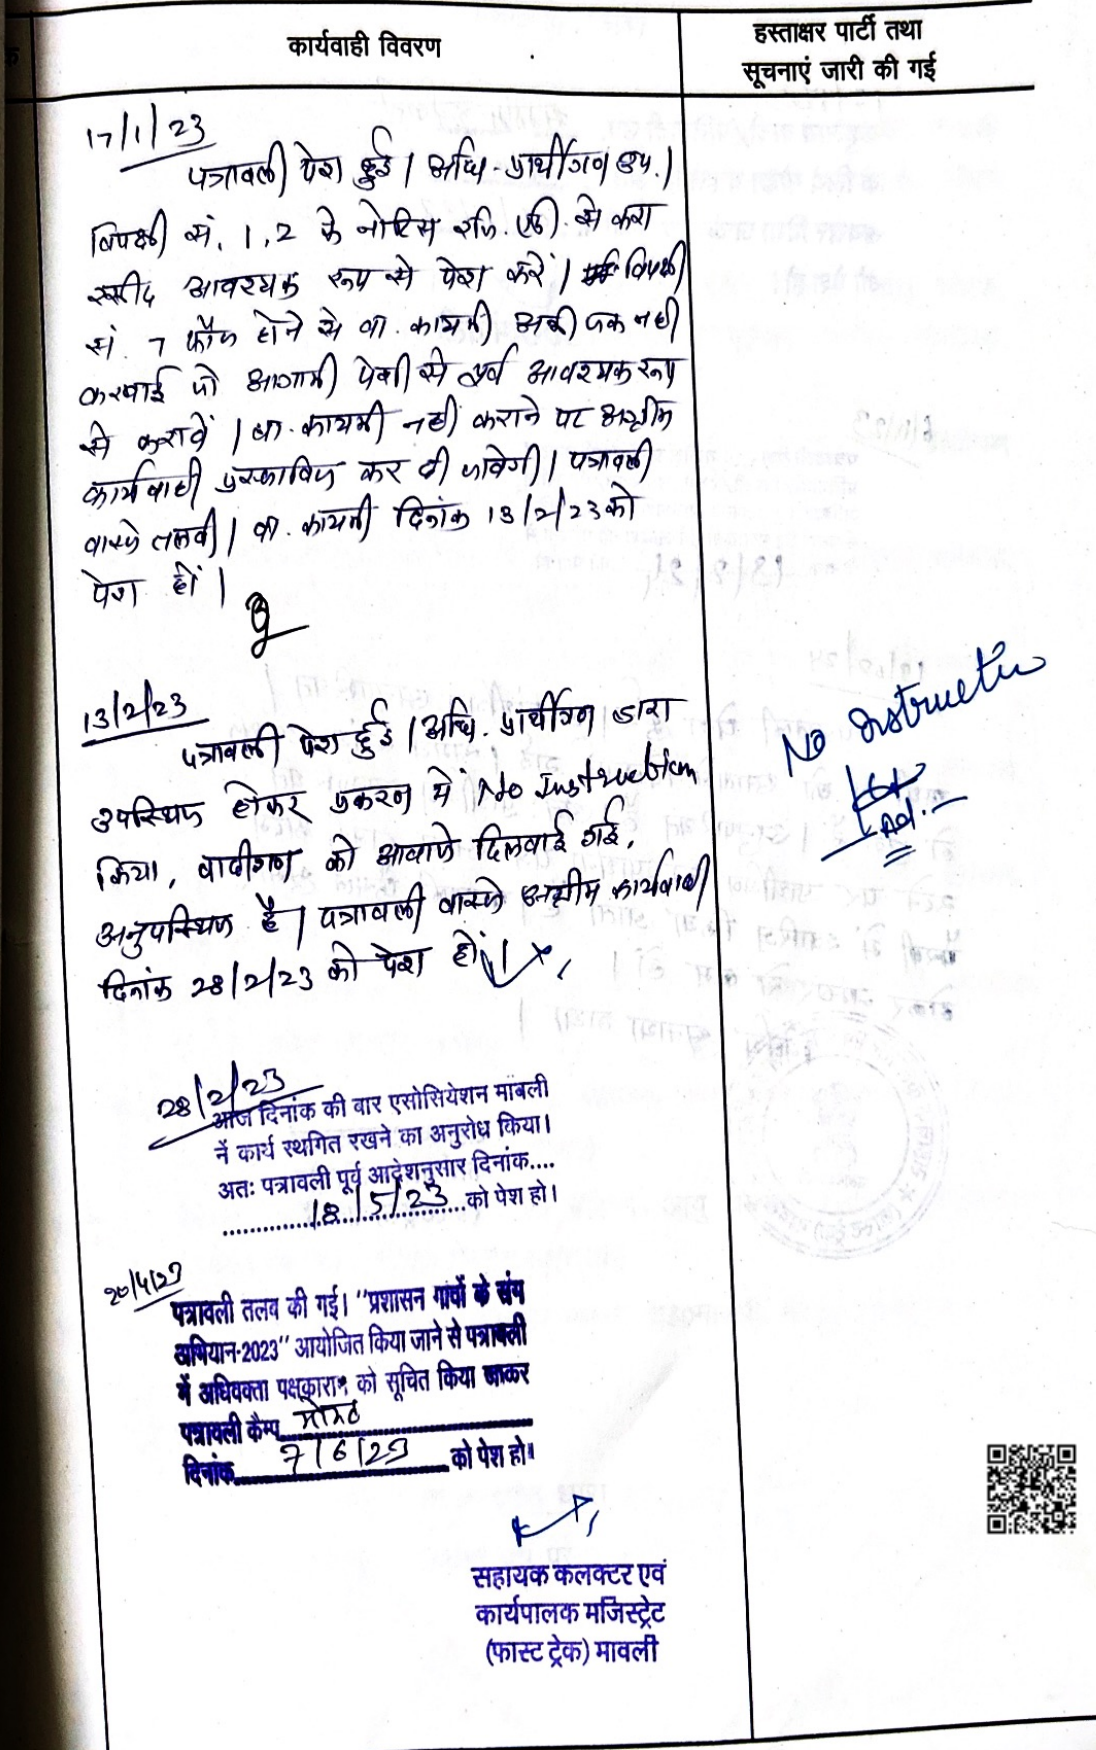 कार्यवाही विवरण
हस्ताक्षर पार्टी तथा
सूचनाएं जारी की गई
17/1/23
पत्रावली पेश हुई। अधि. प्रार्थीगण उप.।
विपक्षी सं. 1, 2 के नोटिस रजि. एडी. से करा
रसीद आवश्यक रूप से पेश करें। विपक्षी
सं. 7 फौत होने से वा. कायमी अभी तक नही
करवाई जो आगामी पेशी से पूर्व आवश्यक रूप
से करावें। वा. कायमी नही कराने पर अग्रीम
कार्यवाही प्रस्तावित कर दी जावेगी। पत्रावली
वास्ते तलबी। वा. कायमी दिनांक 13/2/23 को
पेश हों।
13/2/23
पत्रावली पेश हुई। अधि. प्रार्थीगण द्वारा
उपस्थित होकर प्रकरण में No Instruction
किया, वादीगण को आवाजे दिलवाई गई,
अनुपस्थित है। पत्रावली वास्ते अग्रीम कार्यवाही
दिनांक 28/2/23 को पेश हों।
No Instruction
Adv.
28/2/23
आज दिनांक की बार एसोसियेशन मावली
नें कार्य स्थगित रखने का अनुरोध किया।
अतः पत्रावली पूर्व आदेशनुसार दिनांक....
18/5/23 को पेश हो।
20/4/23
पत्रावली तलब की गई। "प्रशासन गांवों के संग
अभियान-2023" आयोजित किया जाने से पत्रावली
में अधिवक्ता पक्षकारान को सूचित किया जाकर
पत्रावली कैम्प
दिनांक 7/6/23 को पेश हो।
सहायक कलक्टर एवं
कार्यपालक मजिस्ट्रेट
(फास्ट ट्रेक) मावली